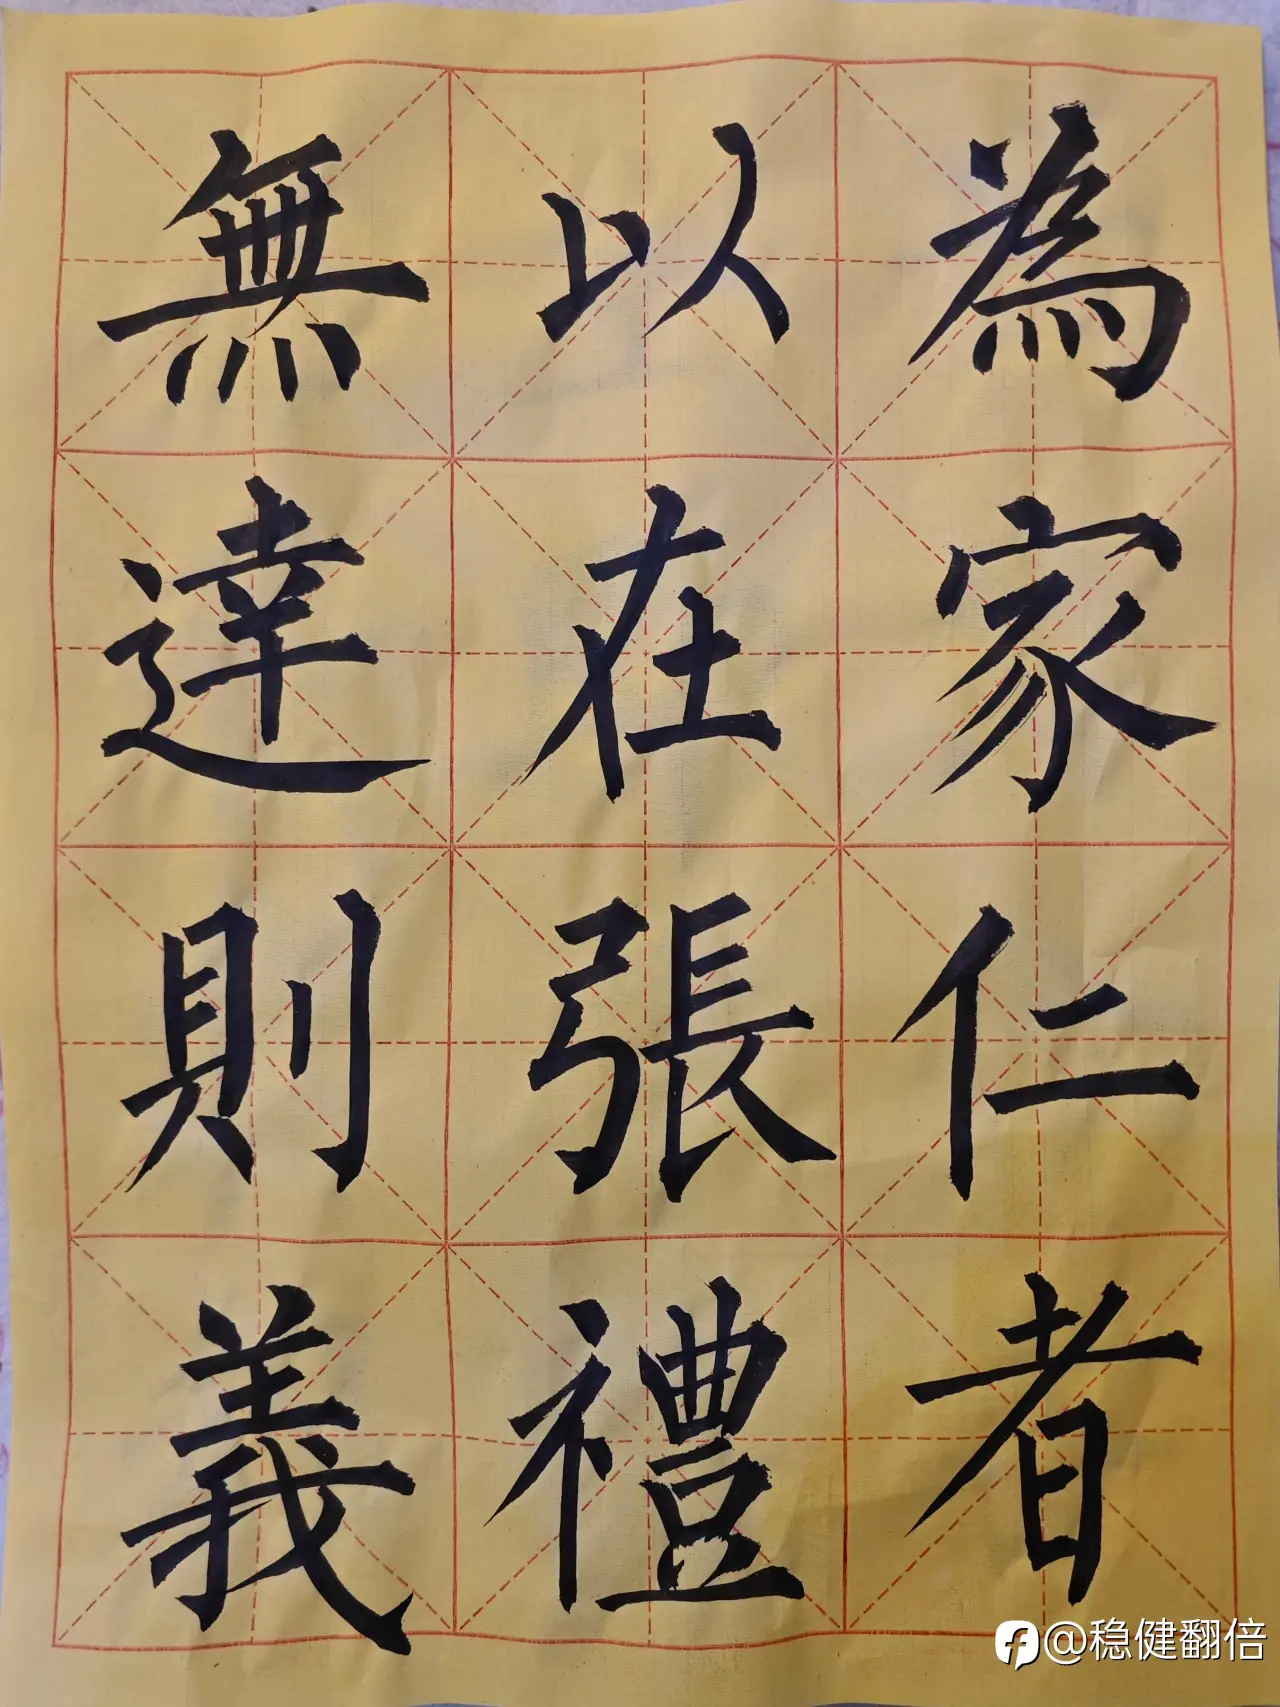 為家仁者
以在張禮
無達則義
@稳健翻倍